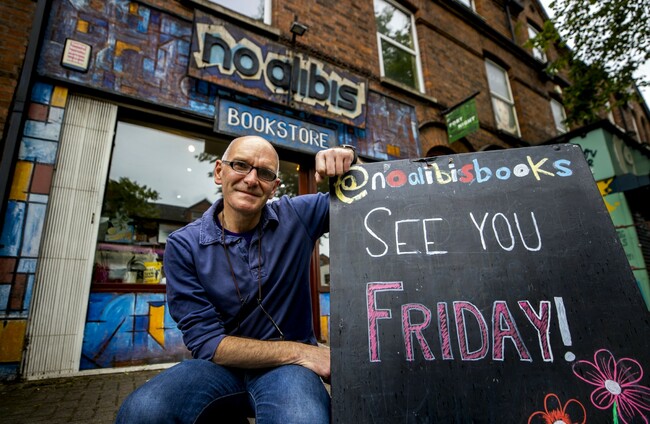 no alibis
BOOKSTORE
@noalibisbooks
SEE YOU
FRIDAY!